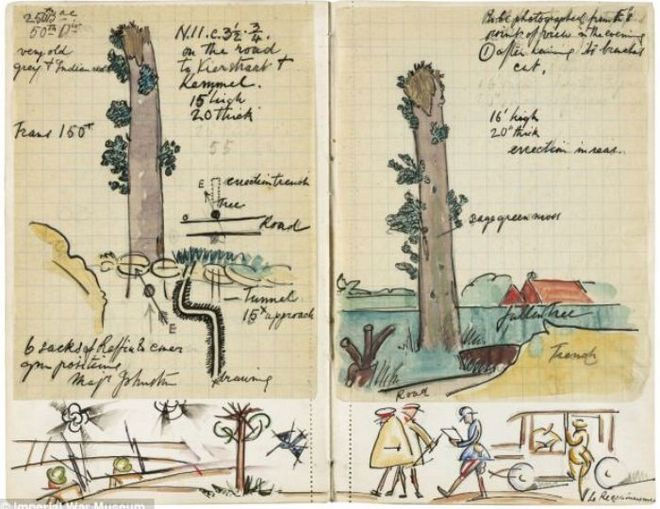 50th Div
very old
grey & Indian red
Trans 150x
N.11.c.3½.¾.
on the road
to Vierstraat &
Kemmel.
15' high
20" thick
55
E
erection trench
Tree
Road
Tunnel
15x approach
E
6 sacks of Raffia & cover
gun positions
Majr Johnston
drawing
To be photographed from the
point of view in the evening
① after having its branches
cut.
16' high
20" thick
erection in rear.
sage green moss
fallen tree
Trench
Road
© Imperial War Museum